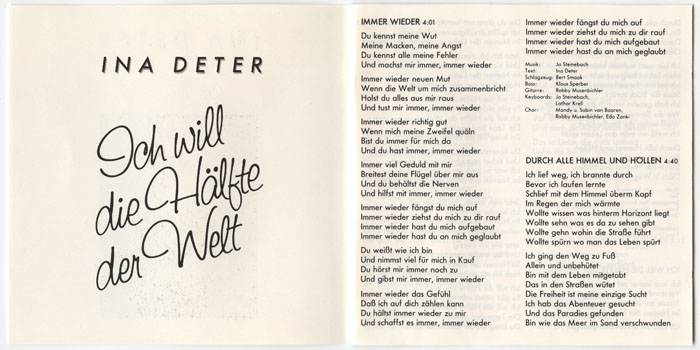 INA DETER
Ich will
die Hälfte
der Welt
IMMER WIEDER 4:01
Du kennst meine Wut
Meine Macken, meine Angst
Du kennst alle meine Fehler
Und machst mir immer, immer wieder
Immer wieder neuen Mut
Wenn die Welt um mich zusammenbricht
Holst du alles aus mir raus
Und tust mir immer, immer wieder
Immer wieder richtig gut
Wenn mich meine Zweifel quäln
Bist du immer für mich da
Und du hast immer, immer wieder
Immer viel Geduld mit mir
Breitest deine Flügel über mir aus
Und du behältst die Nerven
Und hilfst mit immer, immer wieder
Immer wieder fängst du mich auf
Immer wieder ziehst du mich zu dir rauf
Immer wieder hast du mich aufgebaut
Immer wieder hast du an mich geglaubt
Du weißt wie ich bin
Und nimmst viel für mich in Kauf
Du hörst mir immer noch zu
Und gibst mir immer, immer wieder
Immer wieder das Gefühl
Daß ich auf dich zählen kann
Du hältst immer wieder zu mir
Und schaffst es immer, immer wieder
Immer wieder fängst du mich auf
Immer wieder ziehst du mich zu dir rauf
Immer wieder hast du mich aufgebaut
Immer wieder hast du an mich geglaubt
Musik: Jo Steinebach
Text: Ina Deter
Schlagzeug: Bert Smaak
Bass: Klaus Sperber
Gitarre: Robby Musenbichler
Keyboards: Jo Steinebach,
Lothar Krell
Chor: Mandy u. Sabin van Baaren,
Robby Musenbichler, Edo Zanki
DURCH ALLE HIMMEL UND HÖLLEN 4:40
Ich lief weg, ich brannte durch
Bevor ich laufen lernte
Schlief mit dem Himmel überm Kopf
Im Regen der mich wärmte
Wollte wissen was hinterm Horizont liegt
Wollte sehn was es da zu sehen gibt
Wollte gehn wohin die Straße führt
Wollte spürn wo man das Leben spürt
Ich ging den Weg zu Fuß
Allein und unbehütet
Bin mit dem Leben mitgetobt
Das in den Straßen wütet
Die Freiheit ist meine einzige Sucht
Ich hab das Abenteuer gesucht
Und das Paradies gefunden
Bin wie das Meer im Sand verschwunden